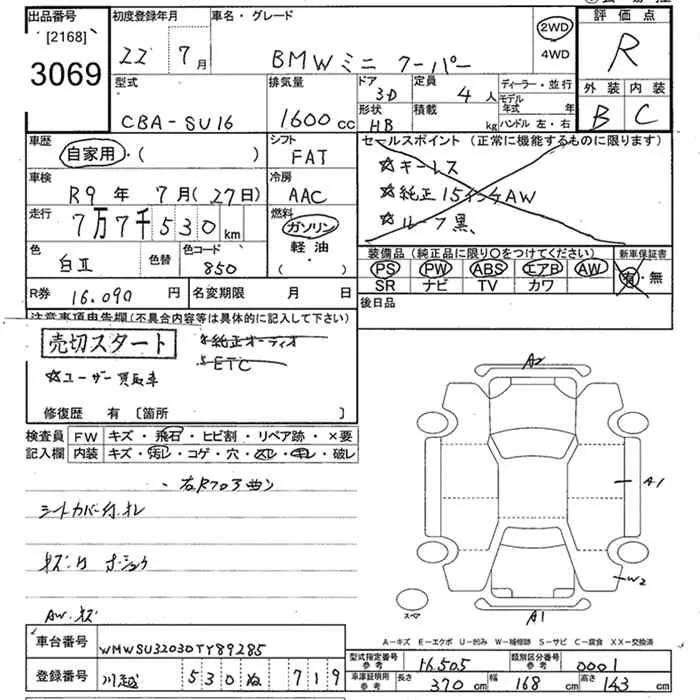 出品番号 初度登録年月 車名・グレード 評価点
[2168]
3069
22 7月 BMWミニ クーパー 2WD 4WD R
型式 排気量 ドア 3D 定員 4人 ディーラー・並行 外装 内装
CBA-SU16 1600cc 形状 HB 積載 kg モデル年式 年 ハンドル 左・右 B C
車歴 自家用・( ) シフト FAT
セールスポイント(正常に機能するものに限ります)
☆キーレス
☆純正15インチAW
☆ルーフ黒、
車検 R9年7月(27日) 冷房 AAC
走行 7万7千530km 燃料 ガソリン 軽油・( )
色 白Ⅱ 色替 色コード 850
装備品(純正品に限り○をつけてください) 新車保証書
PS PW ABS エアB AW 有・無
SR ナビ TV カワ
R券 16.090円 名変期限 月 日 後日品
注意事項申告欄(不具合内容等は具体的に記入して下さい)
売切スタート
☆純正オーディオ
ETC
☆ユーザー買取車
修復歴 有 [箇所 ]
検査員記入欄 FW キズ・飛石・ヒビ割・リペア跡・×要
内装 キズ・汚レ・コゲ・穴・スレ・キレ・破レ
シートカバー付.オレ
AW.キズ
A2
A1
W2
A1
スペア
A-キズ E-エクボ U-凹み W-補修跡 S-サビ C-腐食 XX-交換済
車台番号 WMWSU32030TY89285
型式指定番号 参考 16505 類別区分番号 参考 0001
登録番号 川越 530 ぬ 719
車庫証明用 参考 長さ 370cm 幅 168cm 高さ 143cm